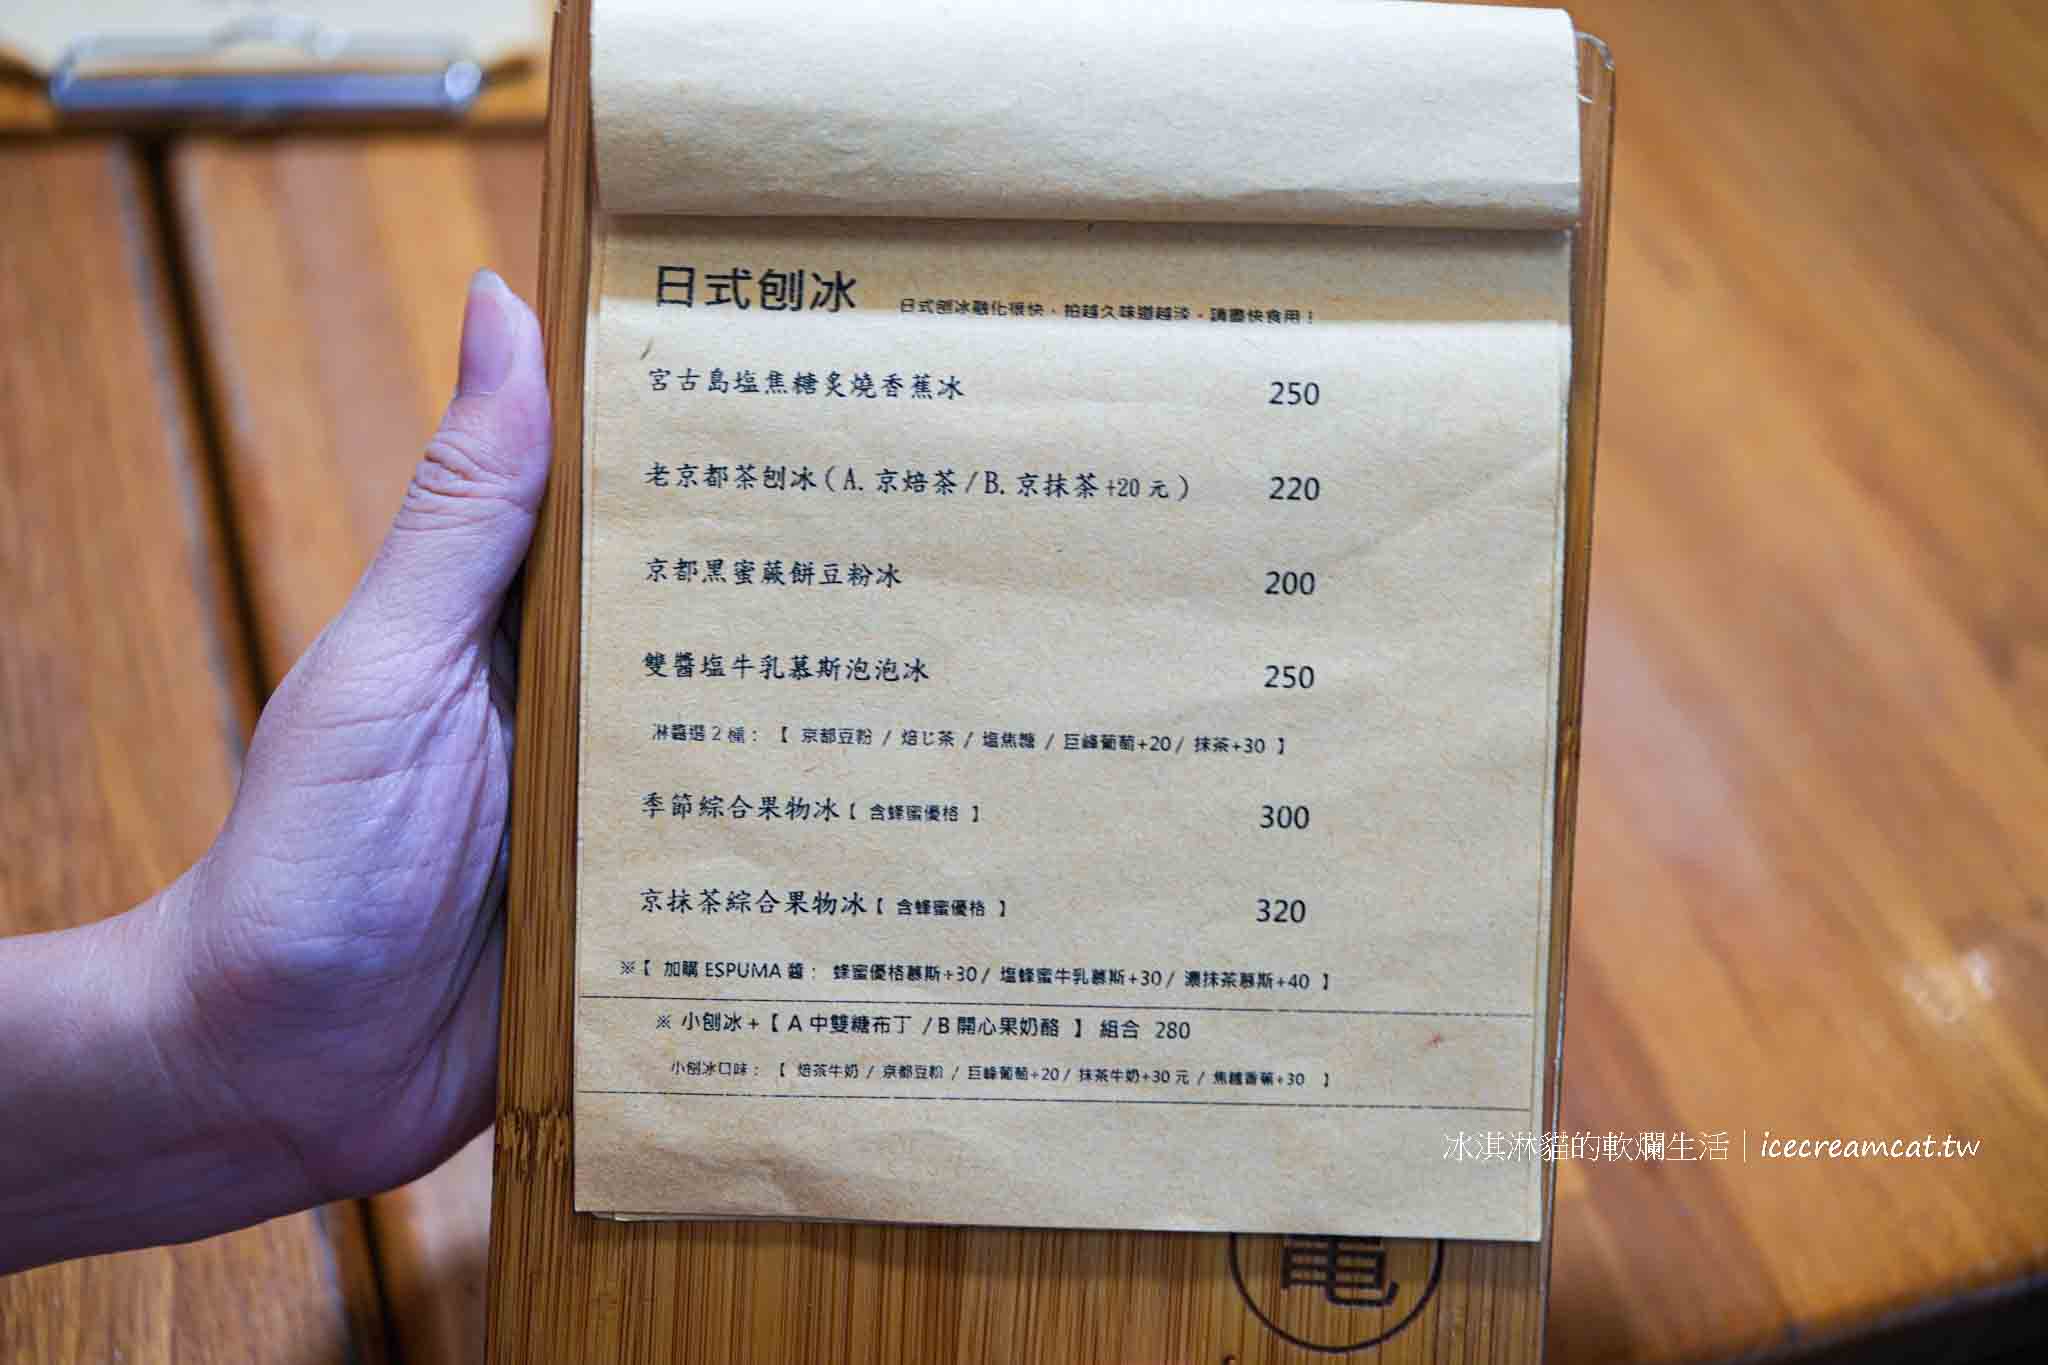 日式刨冰
日式刨冰融化很快，拍越久味道越淡，請盡快食用！
宮古島塩焦糖炙燒香蕉冰 250
老京都茶刨冰（A.京焙茶/B.京抹茶+20元） 220
京都黑蜜蕨餅豆粉冰 200
雙醬塩牛乳慕斯泡泡冰 250
淋醬選2種：【 京都豆粉 / 焙じ茶 / 塩焦糖 / 巨峰葡萄+20/ 抹茶+30 】
季節綜合果物冰【 含蜂蜜優格 】 300
京抹茶綜合果物冰【 含蜂蜜優格 】 320
※【 加購 ESPUMA 醬： 蜂蜜優格慕斯+30/ 塩蜂蜜牛乳慕斯+30/ 濃抹茶慕斯+40 】
※ 小刨冰+【 A 中雙糖布丁 /B 開心果奶酪 】 組合 280
小刨冰口味：【 焙茶牛奶 / 京都豆粉 / 巨峰葡萄+20/ 抹茶牛奶+30 元 / 焦糖香蕉+30 】
冰淇淋貓的軟爛生活｜icecreamcat.tw